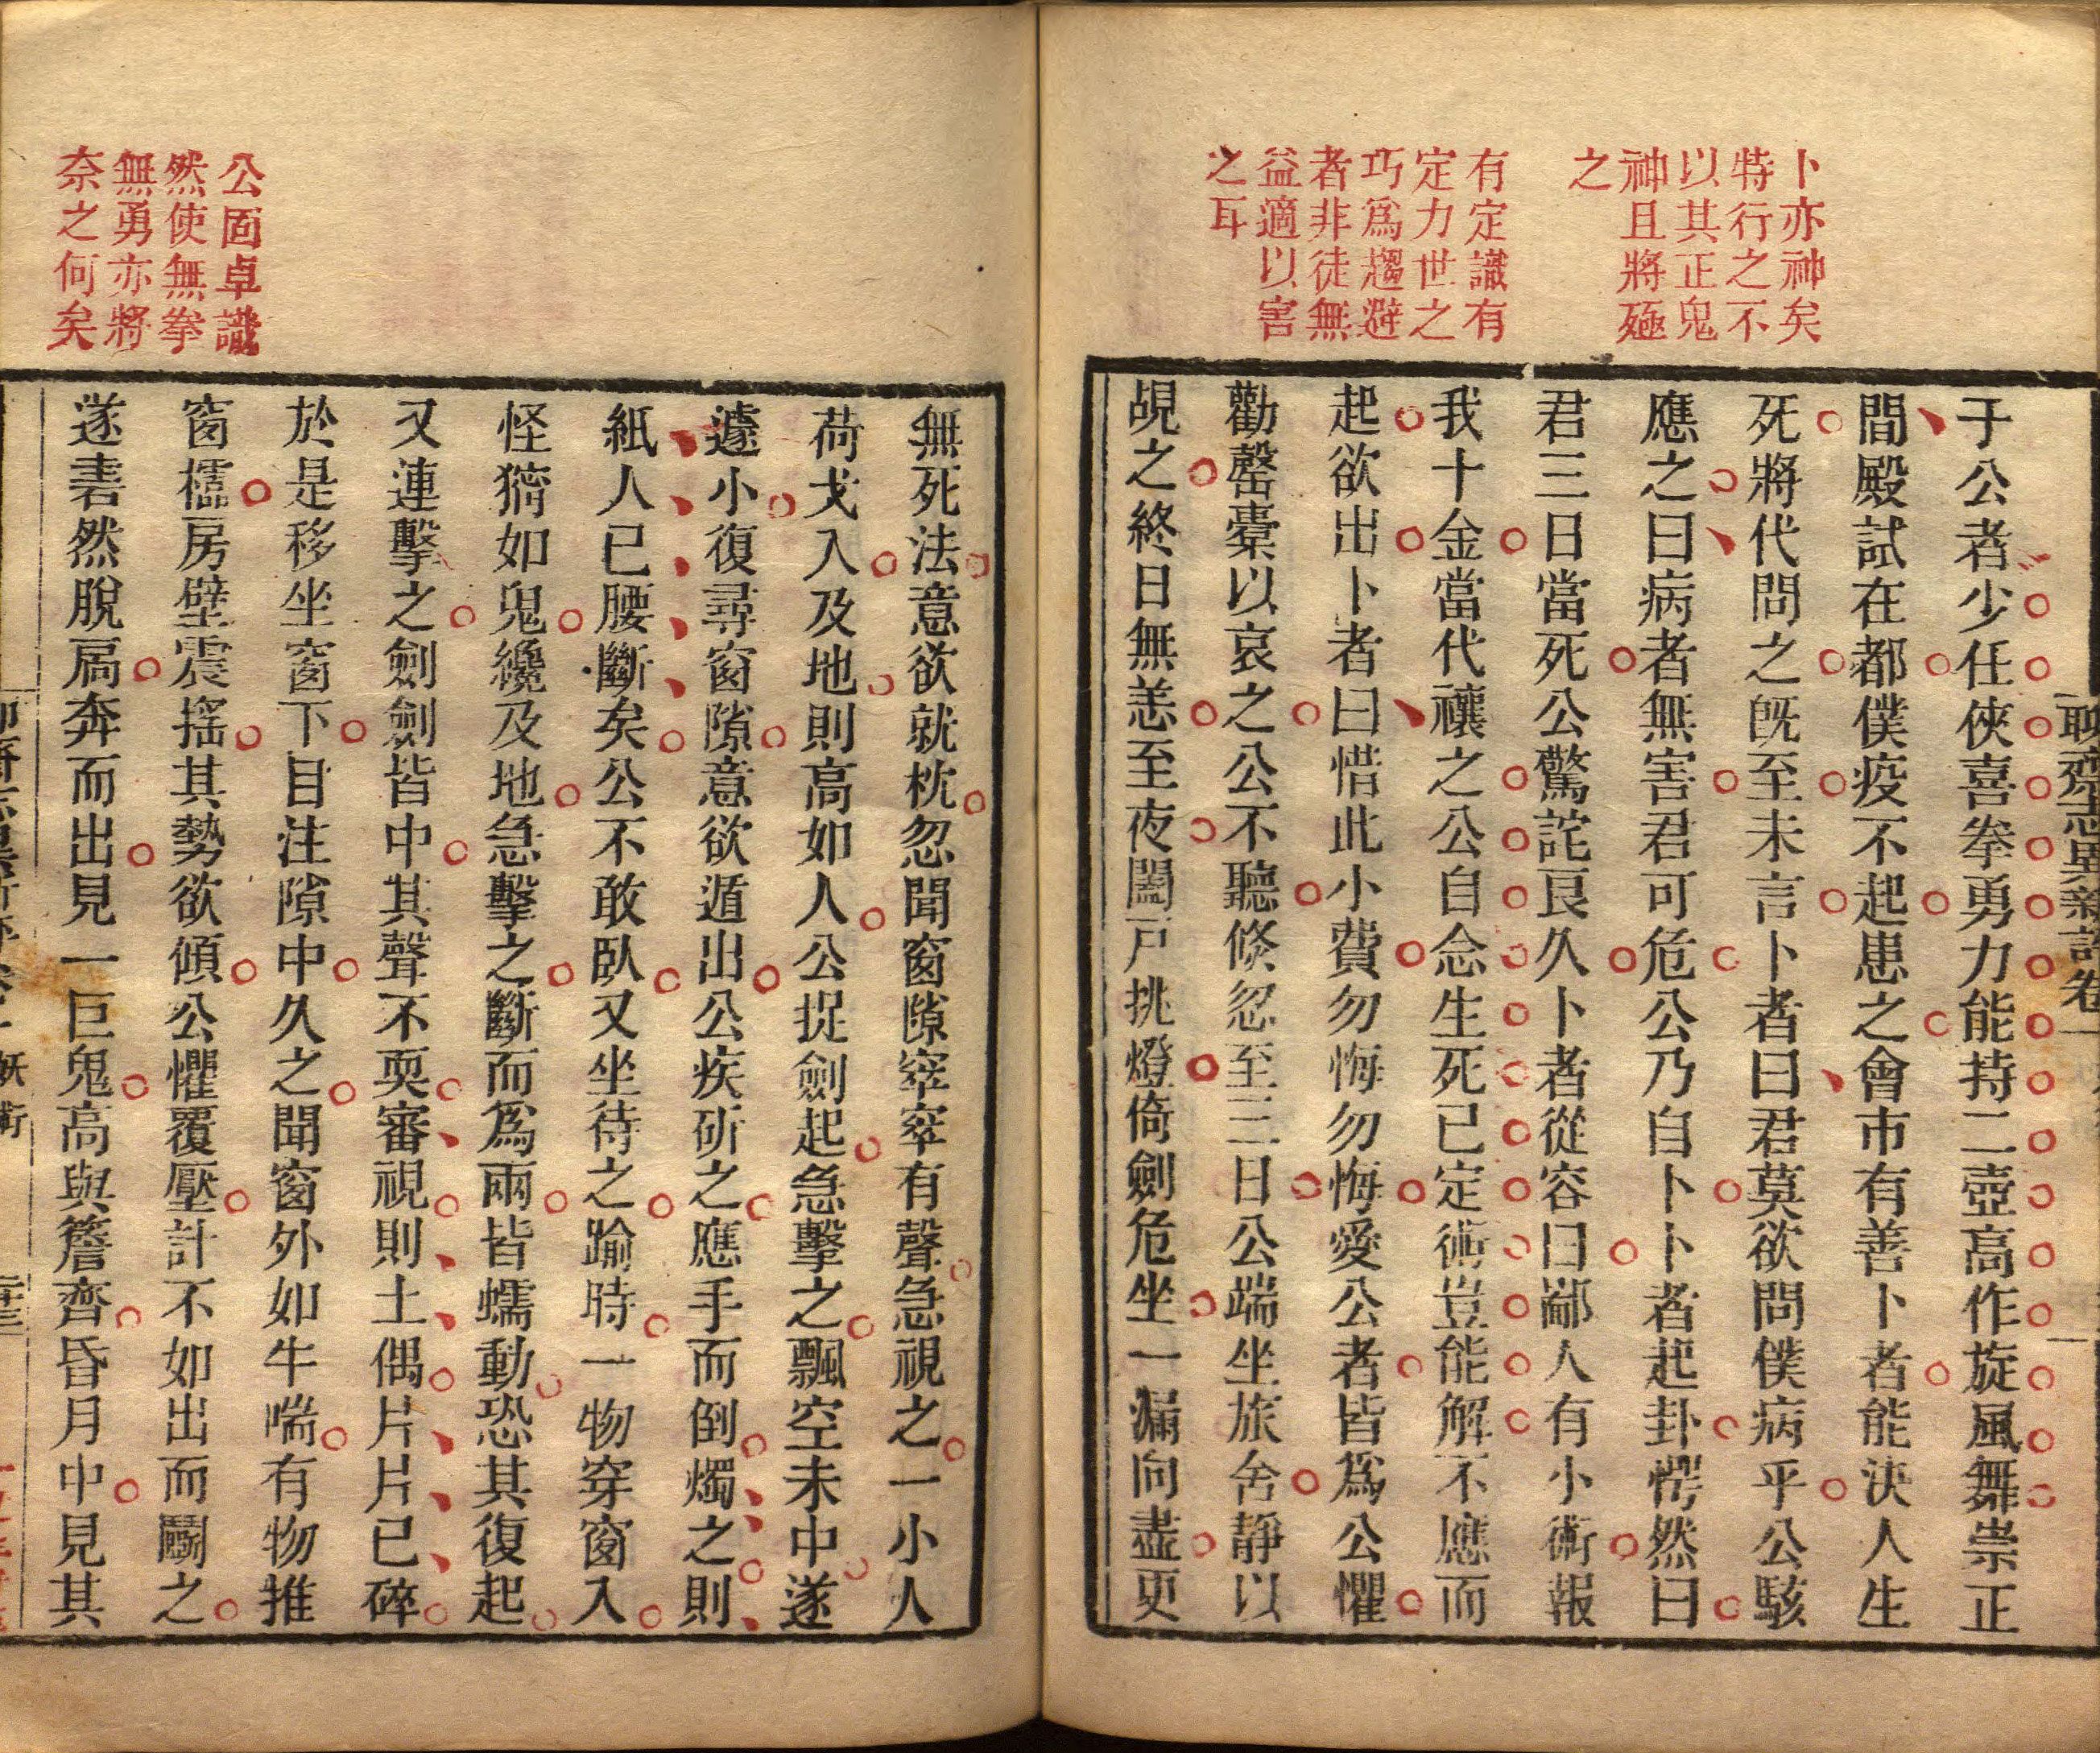 卜亦神矣
特行之不
以其正鬼
神且將殛
之
有定識有
定力世之
巧爲趨避
者非徒無
益適以害
之耳
聊齋志異新評卷一
于公者少任俠喜拳勇力能持二壺高作旋風舞崇正
間殿試在都僕疫不起患之會市有善卜者能決人生
死將代問之旣至未言卜者曰君莫欲問僕病乎公駭
應之曰病者無害君可危公乃自卜卜者起卦愕然曰
君三日當死公驚詫良久卜者從容曰鄙人有小術報
我十金當代禳之公自念生死已定術豈能解不應而
起欲出卜者曰惜此小費勿悔勿悔愛公者皆爲公懼
勸罄橐以哀之公不聽倏忽至三日公端坐旅舍靜以
覘之終日無恙至夜闔戸挑燈倚劍危坐一漏向盡更
公固卓識
然使無拳
無勇亦將
奈之何矣
無死法意欲就枕忽聞窗隙窣窣有聲急視之一小人
荷戈入及地則高如人公捉劍起急擊之飄空未中遂
遽小復尋窗隙意欲遁出公疾斫之應手而倒燭之則
紙人已腰斷矣公不敢臥又坐待之踰時一物穿窗入
怪獰如鬼纔及地急擊之斷而爲兩皆蠕動恐其復起
又連擊之劍劍皆中其聲不耎審視則土偶片片已碎
於是移坐窗下目注隙中久之聞窗外如牛喘有物推
窗櫺房壁震搖其勢欲傾公懼覆壓計不如出而鬭之
遂砉然脫扃奔而出見一巨鬼高與簷齊昏月中見其
妖術